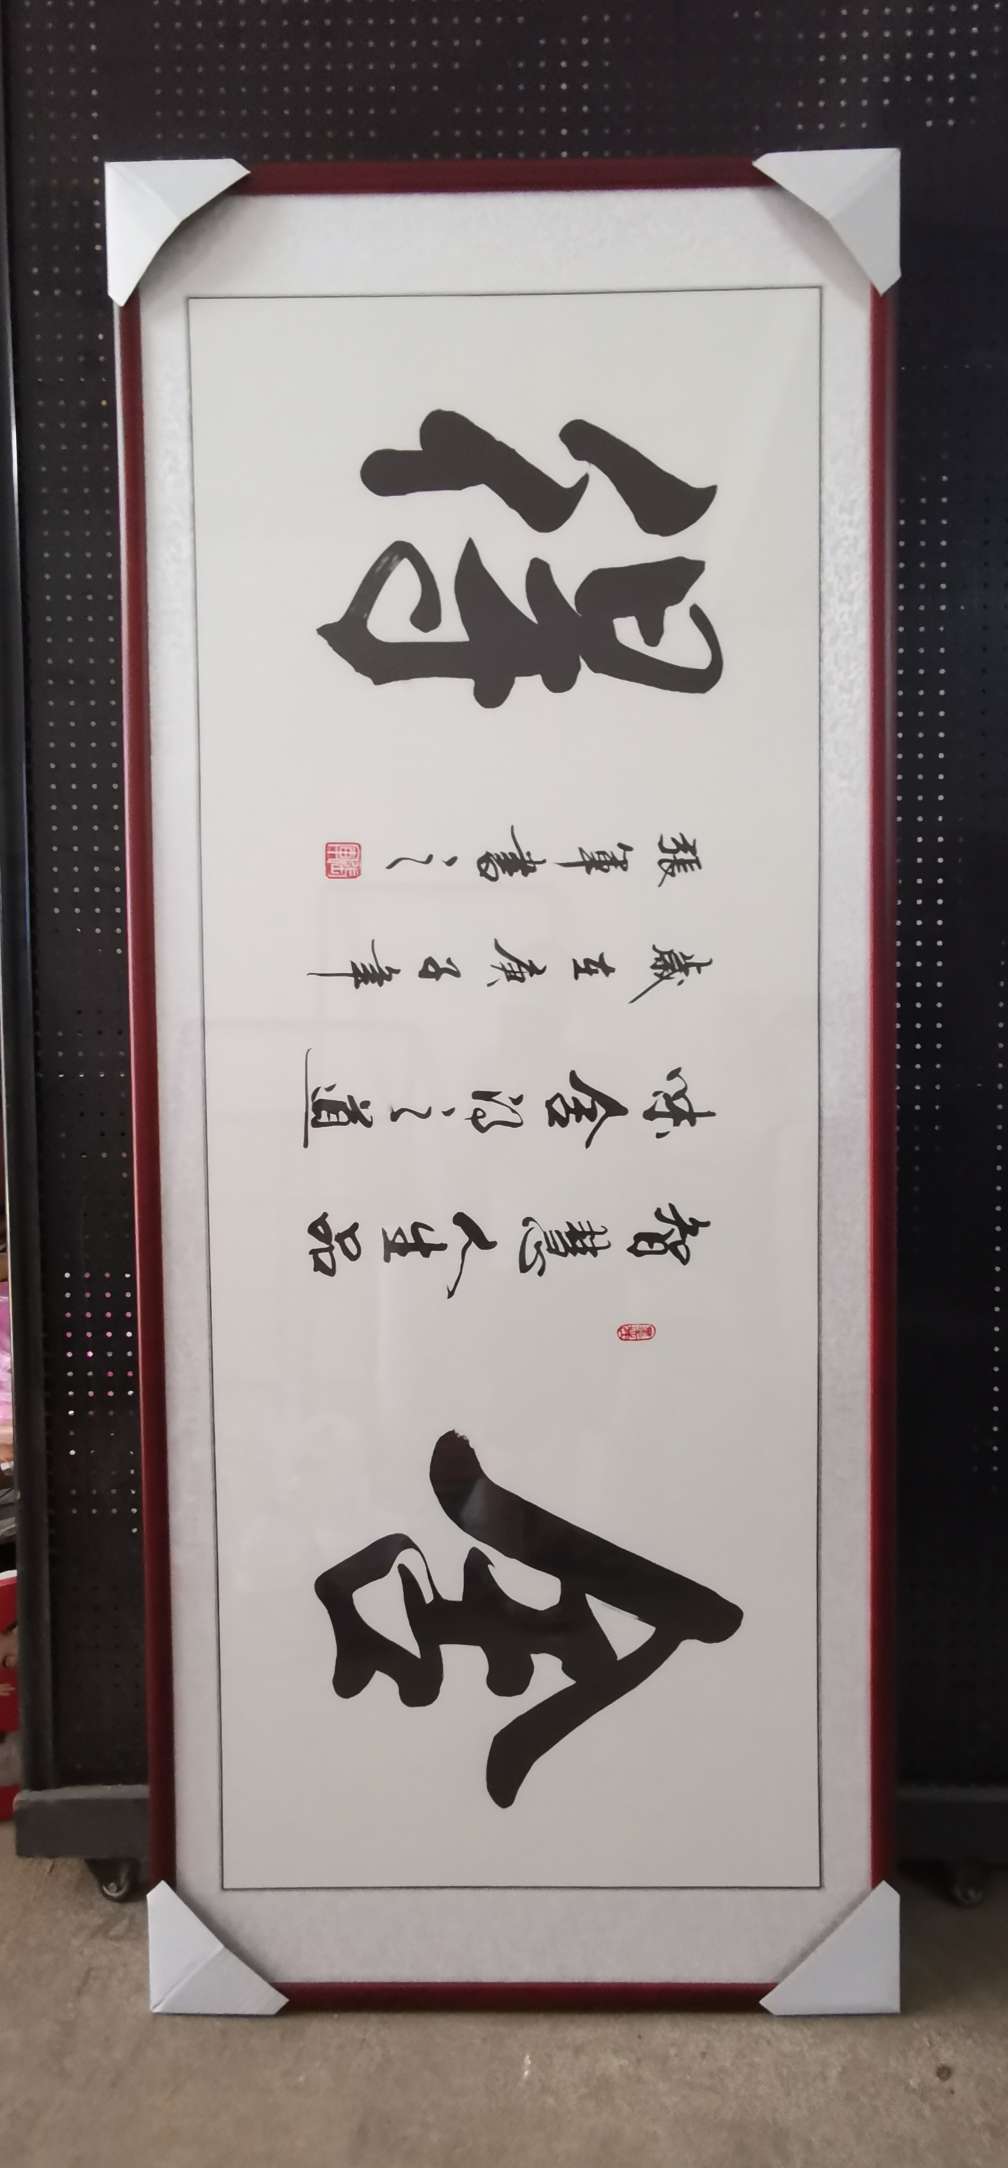 舍得
智慧人生品
味舍得之道
歲在庚子年
張軍書之